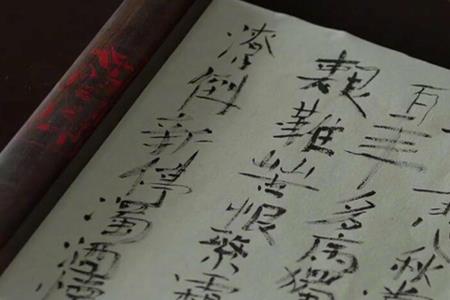 悲秋
百年多病獨
艱難苦恨繁霜
潦倒新停濁酒